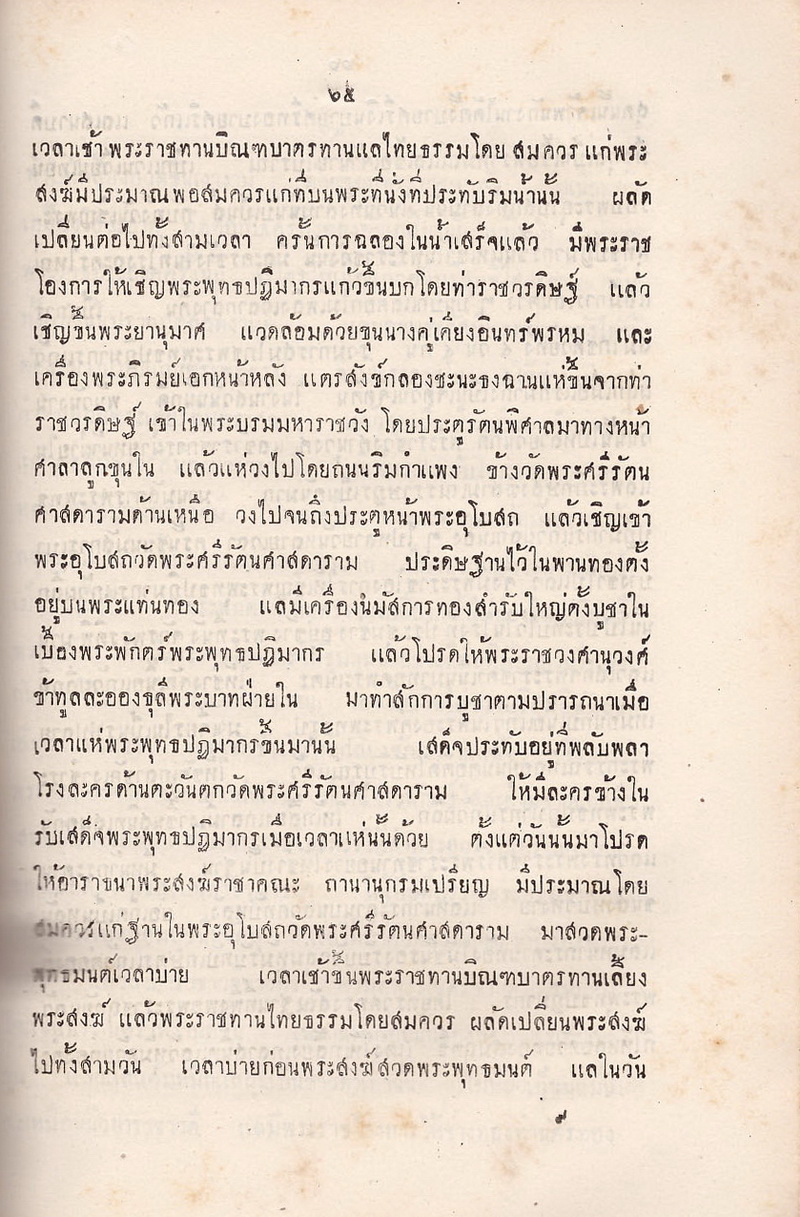 ๖๕
เวลาเช้า พระราชทานบิณฑบาตรทานแลไทยธรรมโดย สมควร แก่พระ
สงฆ์มีประมาณพอสมควรแก่ที่บนพระที่นั่งที่ประทับริมน้ำนั้น ผลัด
เปลี่ยนต่อไปทั้งสามเวลา ครั้นการฉลองในน้ำเสร็จแล้ว มีพระราช
โองการให้เชิญพระพุทธปฏิมากรแก้วขึ้นบกโดยท่าราชวรดิษฐ์ แล้ว
เชิญขึ้นพระยานุมาศ แวดล้อมด้วยขุนนางคู่เคียงอินทร์พรหม และ
เครื่องพระภิรมย์เอกหน้าหลัง แตรสังข์กลองชะนะธงฉานแห่ขึ้นจากท่า
ราชวรดิษฐ์ เข้าในพระบรมมหาราชวัง โดยประตูรัตนพิศาลมาทางหน้า
ศาลาลูกขุนใน แล้วแห่วงไปโดยถนนริมกำแพง ข้างวัดพระศรีรัตน
ศาสดารามด้านเหนือ วงไปจนถึงประตูหน้าพระอุโบสถ แล้วเชิญเข้า
พระอุโบสถวัดพระศรีรัตนศาสดาราม ประดิษฐานไว้ในพานทองตั้ง
อยู่บนพระแท่นทอง แลมีเครื่องนมัสการทองสำรับใหญ่ตั้งบูชาใน
เบื้องพระพักตร์พระพุทธปฏิมากร แล้วโปรดให้พระราชวงศานุวงศ์
ข้าทูลละอองธุลีพระบาทฝ่ายใน มาทำสักการบูชาตามปรารถนาเมื่อ
เวลาแห่พระพุทธปฏิมากรขึ้นมานั้น เสด็จประทับอยู่ที่พลับพลา
โรงละครด้านตะวันตกวัดพระศรีรัตนศาสดาราม ให้มีละครข้างใน
รับเสด็จพระพุทธปฏิมากรเมื่อเวลาแห่นั้นด้วย ตั้งแต่วันนั้นมาโปรด
ให้อาราธนาพระสงฆ์ราชาคณะ ถานานุกรมเปรียญ มีประมาณโดย
สมควรแก่ฐานในพระอุโบสถวัดพระศรีรัตนศาสดาราม มาสวดพระ-
พุทธมนต์เวลาบ่าย เวลาเช้าขึ้นพระราชทานบิณฑบาตรทานเลี้ยง
พระสงฆ์ แล้วพระราชทานไทยธรรมโดยสมควร ผลัดเปลี่ยนพระสงฆ์
ไปทั้งสามวัน เวลาบ่ายก่อนพระสงฆ์สวดพระพุทธมนต์ แลในวัน
๙